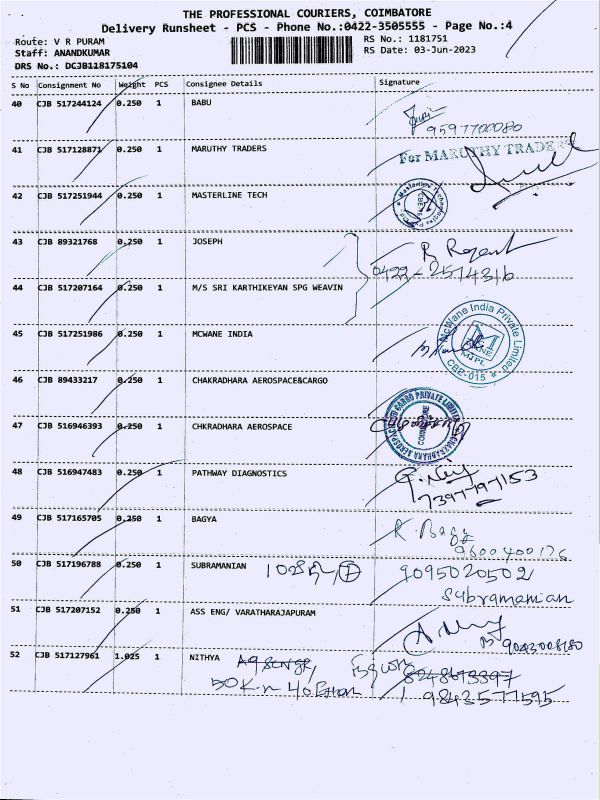 THE PROFESSIONAL COURIERS, COIMBATORE
Delivery Runsheet - PCS - Phone No.:0422-3505555 - Page No.:4
Route: V R PURAM RS No.: 1181751
Staff: ANANDKUMAR RS Date: 03-Jun-2023
DRS No.: DCJB118175104
S No Consignment No Weight PCS Consignee Details Signature
40 CJB 517244124 0.250 1 BABU
9597700080
41 CJB 517128871 0.250 1 MARUTHY TRADERS For MARUTHY TRADERS
42 CJB 517251944 0.250 1 MASTERLINE TECH
43 CJB 89321768 0.250 1 JOSEPH
0422-2574316
44 CJB 517207164 0.250 1 M/S SRI KARTHIKEYAN SPG WEAVIN
45 CJB 517251986 0.250 1 MCWANE INDIA McWane India Private Limited
MJPL
CBE-015
46 CJB 89433217 0.250 1 CHAKRADHARA AEROSPACE&CARGO
47 CJB 516946393 0.250 1 CHKRADHARA AEROSPACE
48 CJB 516947483 0.250 1 PATHWAY DIAGNOSTICS
7397797153
49 CJB 517165705 0.250 1 BAGYA
9600400176
50 CJB 517196788 0.250 1 SUBRAMANIAN 9095020502
Subramanian
51 CJB 517207152 0.250 1 ASS ENG/ VARATHARAJAPURAM
9043008180
52 CJB 517127961 1.025 1 NITHYA
9843577595